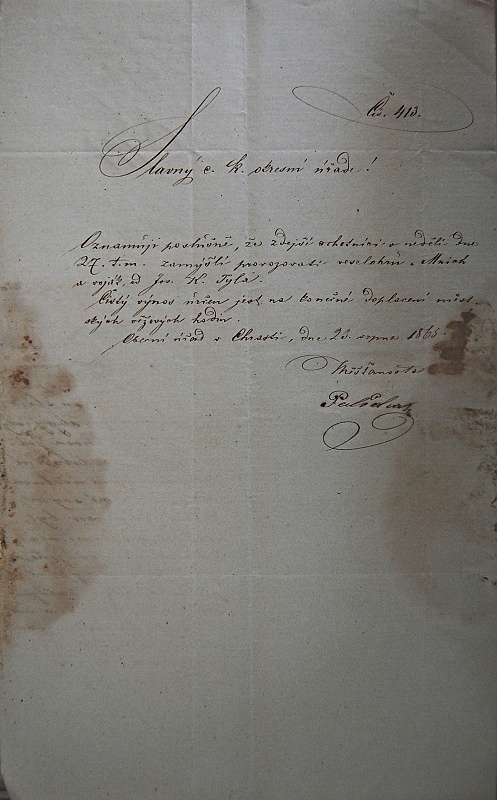 Čís. 413.
Slavný c. k. okresní úřade!
Oznamuji poslušně, že zdejší ochotníci v neděli dne
27. t. m. zamýšlí provozovati veselohru „Mnich
a voják" od Jos. K. Tyla.
Čistý výnos určen jest na konečné doplacení měst-
ských věžových hodin.
Obecní úřad v Chrasti, dne 23. srpna 1865.
Měšťanosta